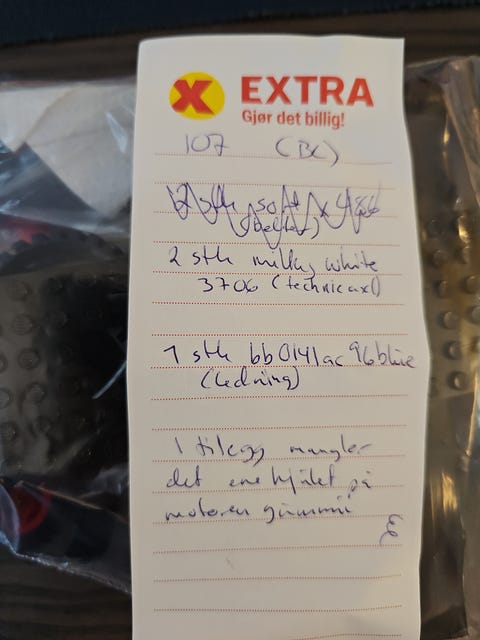 X EXTRA
Gjør det billig!
107 (BL)
12 stk soft x 486
(belter)
2 stk milky white
3706 (technic axl)
1 stk bb0141ac96blue
(ledning)
I tilegg mangler
det ene hjulet på
motoren gummi